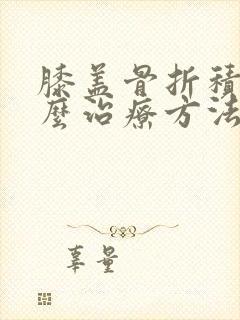 膝盖骨折積
麼治療方法
辜量